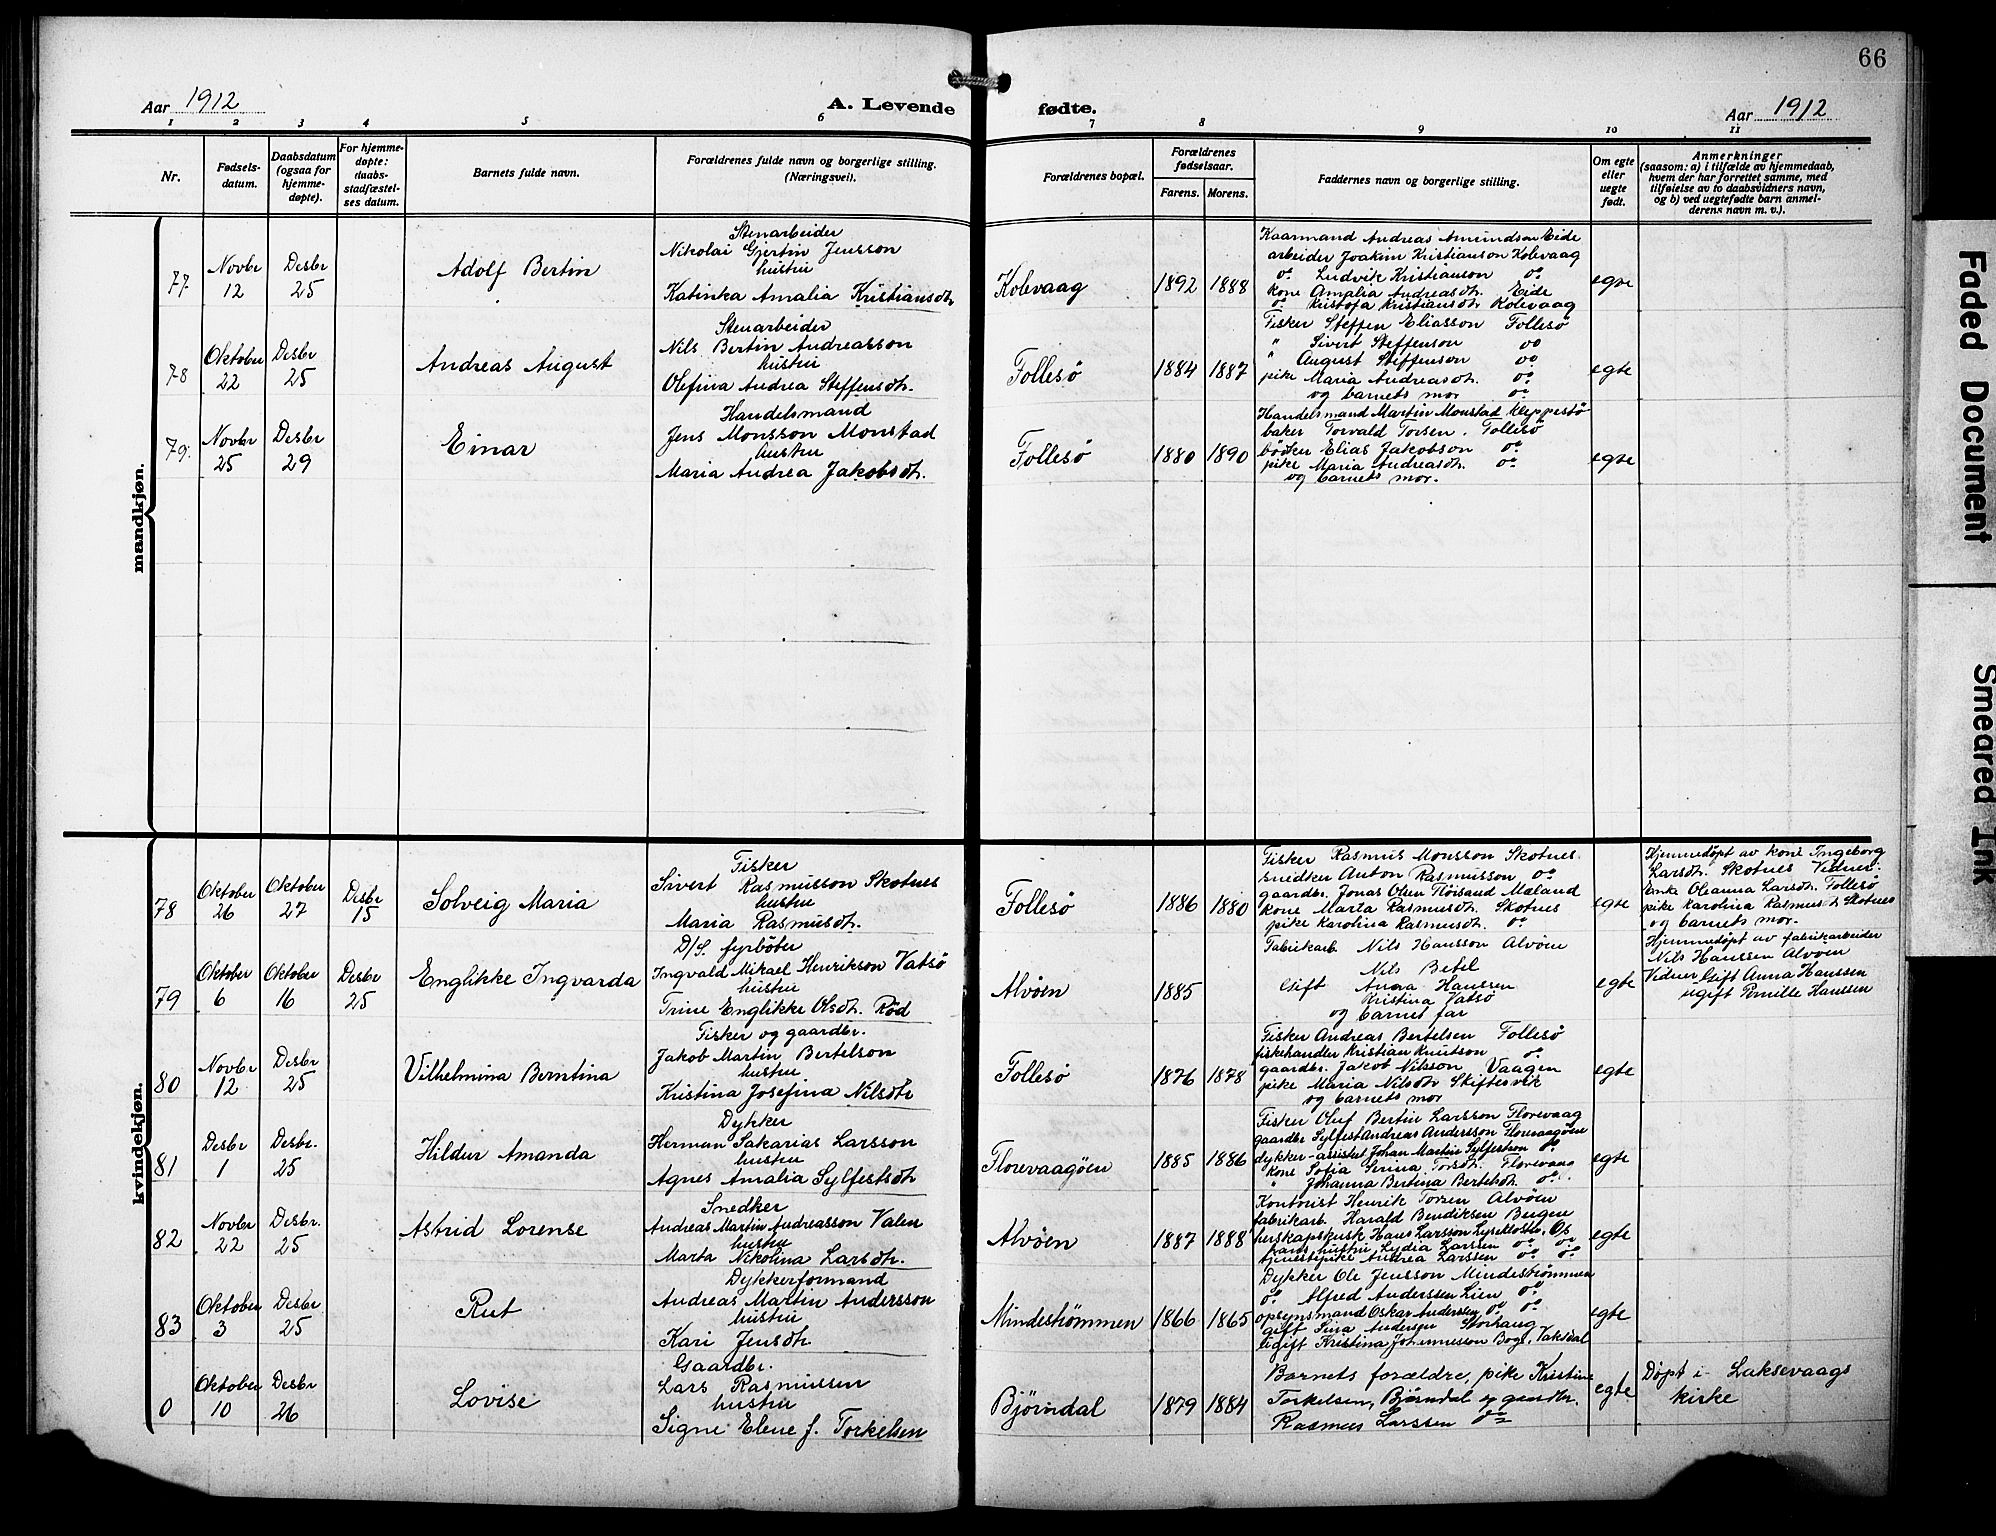 66
Aar 1912 A. Levende fødte. Aar 1912
1 2 3 4 5 6 7 8 9 10 11
Nr.
Fødsels-
datum.
Daabsdatum
(ogsaa for
hjemme-
døpte).
For hjemme-
døpte:
daabs-
stadfæstel-
ses datum.
Barnets fulde navn.
Forældrenes fulde navn og borgerlige stilling.
(Næringsvei).
Forældrenes bopæl.
Forældrenes
fødselsaar.
Farens. Morens.
Faddernes navn og borgerlige stilling.
Om egte
eller
uegte
født.
Anmerkninger
(saasom: a) i tilfælde av hjemmedaab,
hvem der har forrettet samme, med
tilføielse av to daabsvidners navn,
og b) ved uegtefødte barn anmel-
derens navn m. v.).
mandkjøn.
77
Novbr
12
Desbr
25
Adolf Bertin
Stenarbeider
Nikolai Gjertin Jensson
hustru
Katinka Amalia Kristiansdtr
Kolevaag
1892 1888
Kaarmand Andreas Amundsen Eide
arbeider Joakim Kristianson Kolevaag
do Ludvik Kristianson do
kone Amalia Andreasdtr. Eide
do Kristofa Kristiansdtr Kolevaag
egte
78
Oktober
22
Desbr
25
Andreas August
Stenarbeider
Nils Bertin Andreasson
hustru
Olefina Andrea Steffensdtr.
Follesö
1884 1887
Fisker Steffen Eliasson Follesö
" Sivert Steffenson do
" August Steffenson do
pike Maria Andreasdtr. do
og barnets mor do
egte
79.
Novbr
25
Desbr
29
Einar
Handelsmand
Jens Monsson Monstad
hustru
Maria Andrea Jakobsdtr.
Follesö
1880 1890
Handelsmand Martin Monstad Kleppestö
baker Torvald Torsen. Follesö
bödker Elias Jakobson do
pike Maria Andreasdtr. do
og barnets mor.
egte
kvindekjøn.
78
Oktober
26
Oktober
27
Desbr
15
Solveig Maria
Fisker
Sivert Rasmusson Skotnes
hustru
Maria Rasmusdtr.
Follesö
1886 1880
Fisker Rasmus Monsson Skotnes.
snedker Anton Rasmusson do
gaardbr. Jonas Olsen Flöisand Mæland
kone Marta Rasmusdtr. Skotnes
pike Karolina Rasmusdtr. do
egte
Hjemmedöpt av kone Ingeborg
Larsdtr. Skotnes Vidner:
Enke Oleanna Larsdtr. Follesö
pike Karolina Rasmusdtr Skotnes
og barnets mor.
79
Oktober
6
Oktober
16
Desbr
25
Englikke Ingvarda
D/S. fyrböter
Ingvald Mikael Henrikson Vatsö
hustru
Trine Englikke Olsdtr. Röd
Alvöen
1885
Fabrikarb. Nils Hansson Alvöen
Nils Betel
Gift Anna Hanssen
Kristina Vatsö
og barnet far
egte
Hjemmedöpt av fabrikarbeider
Nils Hanssen Alvöen
Vidner Gift Anna Hanssen
ugift Pernille Hanssen
80
Novbr
12
Desbr
25
Vilhelmina Berntina
Fisker og gaardbr.
Jakob Martin Bertelson
hustru
Kristina Josefina Nilsdtr
Follesö
1876 1878
Fisker Andreas Bertelsen Follesö
fiskehandler Kristian Knutson do
gaardbr. Jakob Nilsson Vaagen
pike Maria Nilsdtr Skiftesvik
og barnets mor
egte
81
Desbr
1
Desbr.
25
Hildur Amanda
Dykker
Herman Sakarias Larsson
hustru
Agnes Amalia Sylfestsdtr
Florevaagöen
1885 1886
Fisker Oluf Bertin Larsson Florevaag
gaardbr Sylfest Andreas Andersson Florevaagöen
dykker-assistet Johan Martin Sylfestson do
kone Sofia Serina Torsdtr. Florevaag
" Johanna Bertina Bertelsdtr. do
egte
82
Novbr
22
Desbr.
25
Astrid Lorense
Snedker
Andreas Martin Andreasson Valen
hustru
Marta Nikolina Larsdtr.
Alvöen
1887 1888
Kontorist Henrik Torsen Alvöen
fabrikarb. Harald Bendiksen Bergen
herskapskusk Hans Larsson Lysekloster, Os
hans hustru Lydia Larssen do do
tjenestepike Andrea Larssen do do
egte
83
Oktober
3
Desbr
25
Rut
Dykkerformand
Andreas Martin Andersson
hustru
Kari Jensdtr
Mindeströmmen
1866 1865
Dykker Ole Jensson Mindeströmmen
do Alfred Anderssen Lien do
opsynsmand Oskar Andersen do do
gift Sina Andersen Storhaug
ugift Kristina Johannesson Bogs. Vaksdal
egte
0
Oktober
10
Desbr
26
Lovise
Gaardbr.
Lars Rasmussen
hustru
Signe Elene f. Torkelsen
Björndal
1879 1884
Barnets forældre, pike Kristine
Torkelsen, Björndal og gaardbr.
Rasmus Larssen do
egte
Döpt i Laksevaags
kirke
Faded Document
Smeared Ink